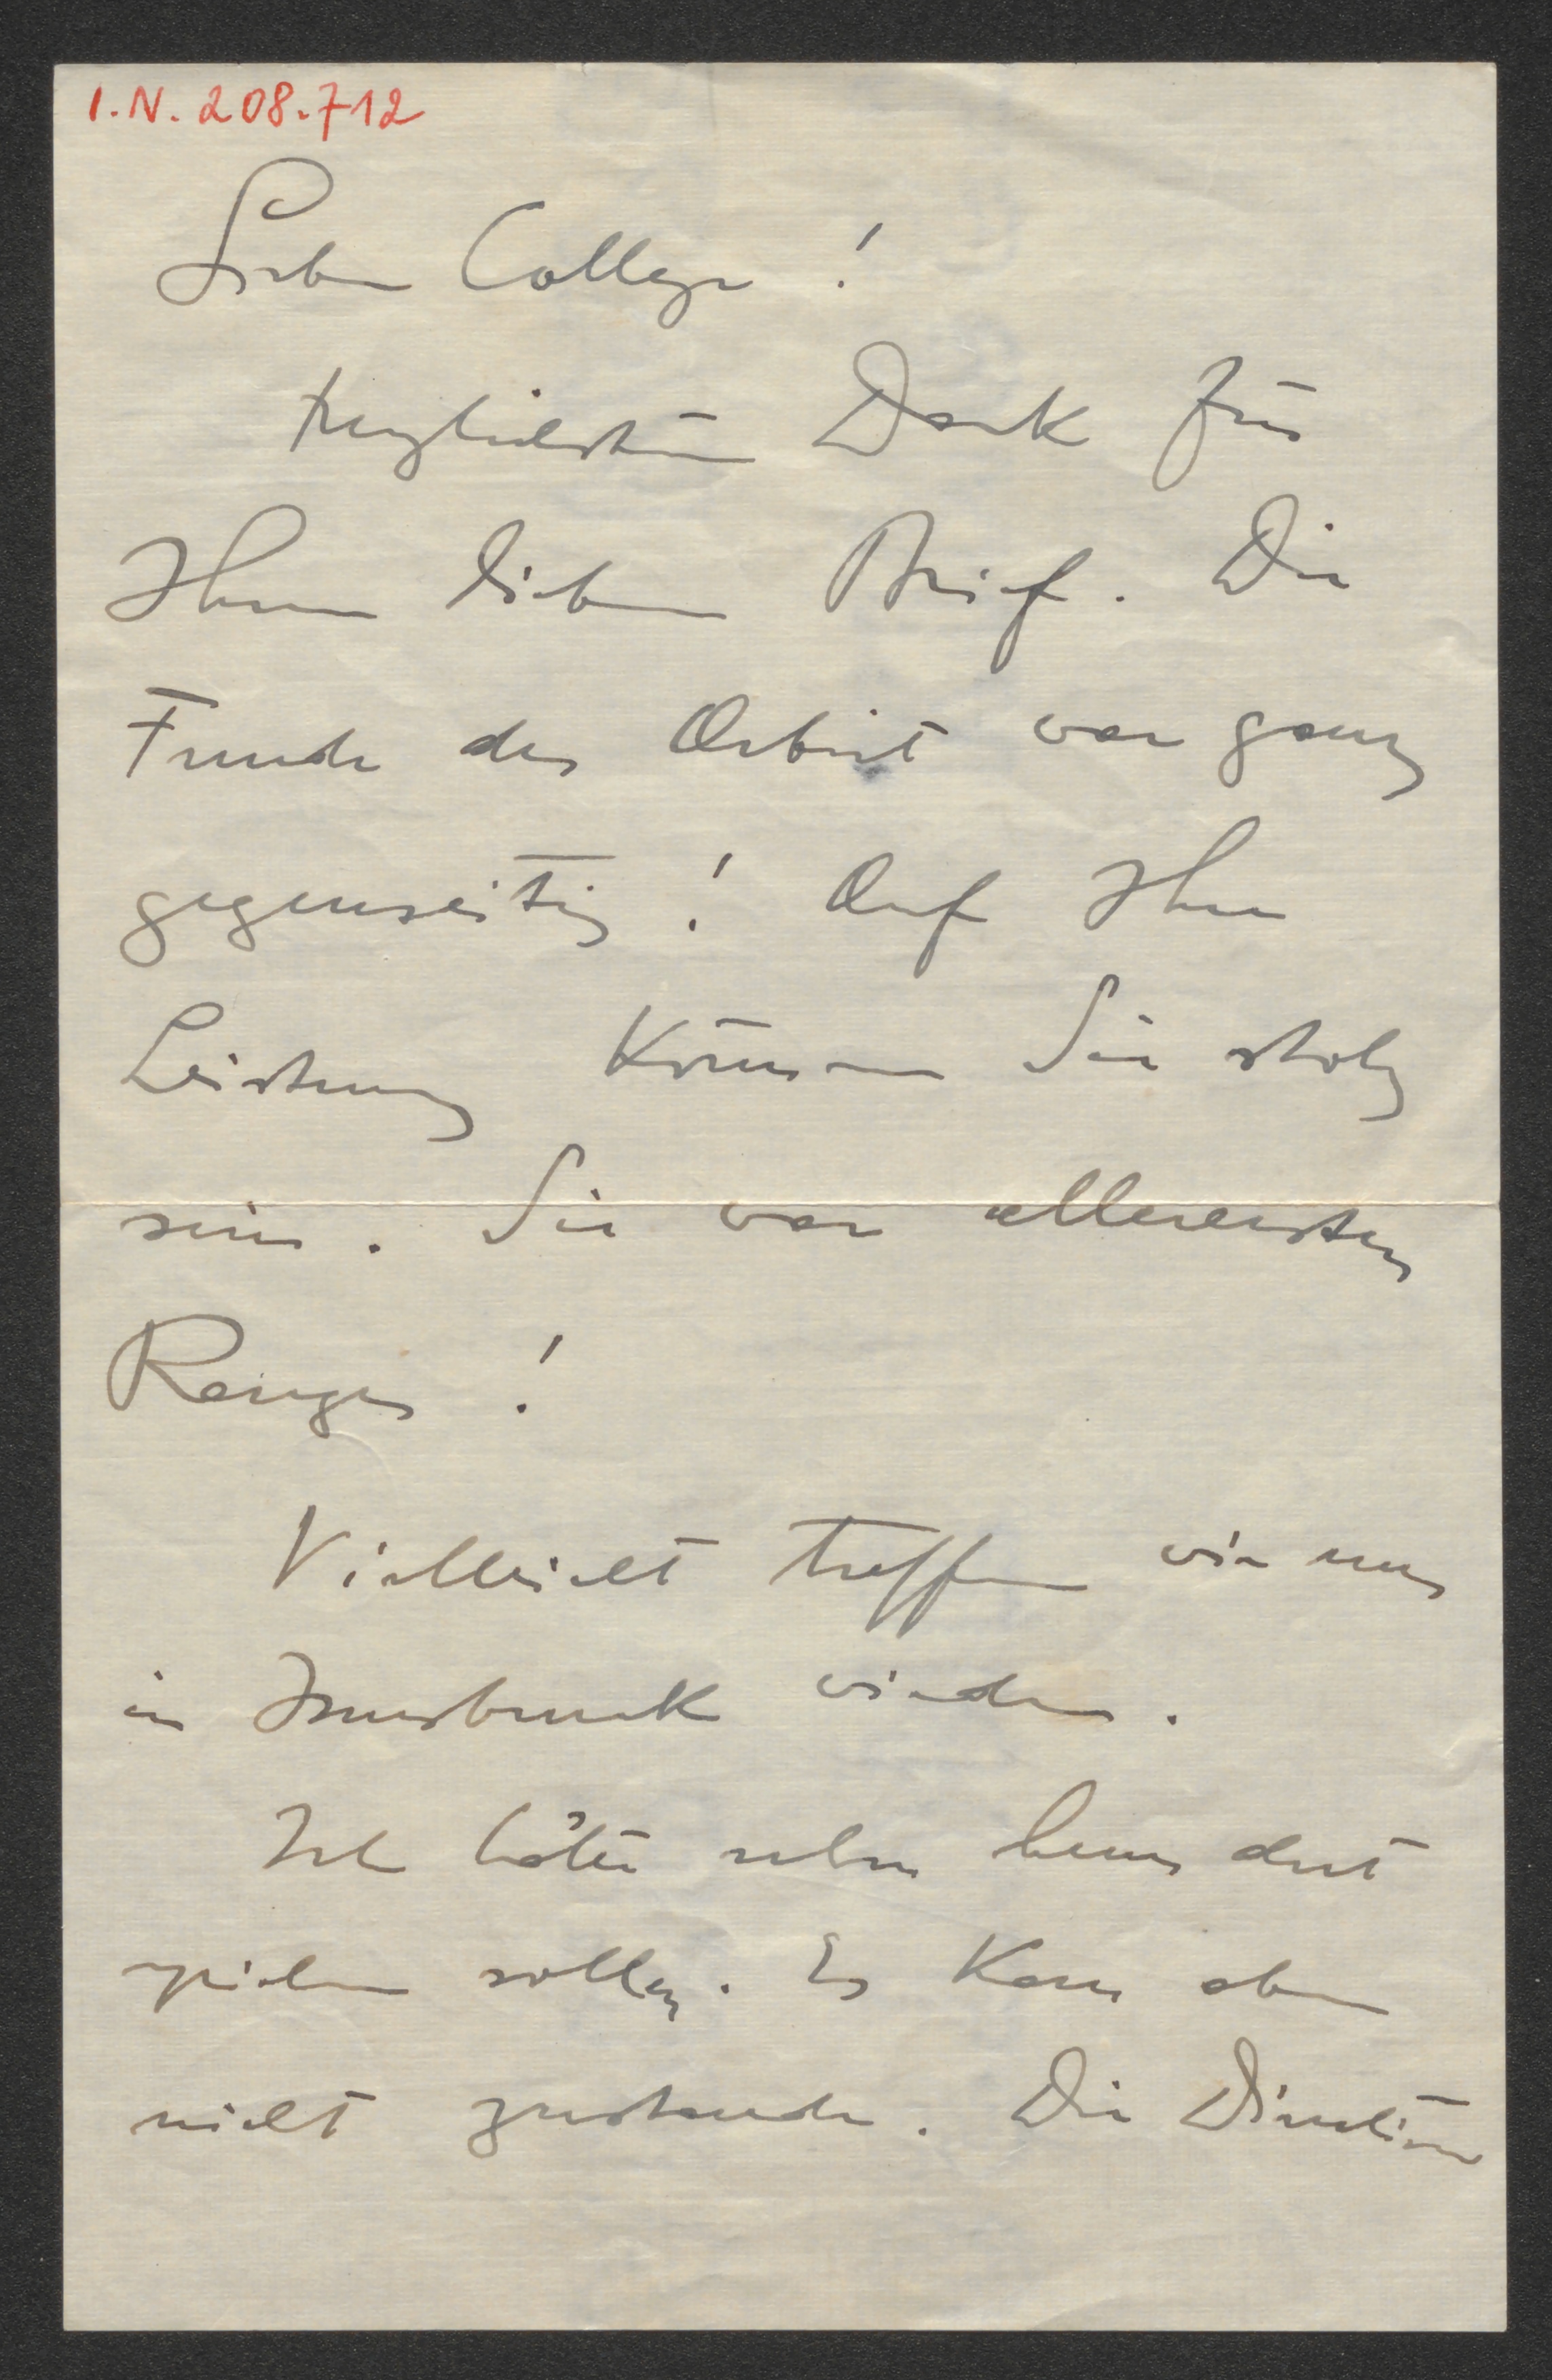 I.N. 208.712
Lieber College!
Herzlichsten Dank für
Ihren lieben Brief. Die
Freude der Arbeit war ganz
gegenseitig! Auf Ihre
Leistung können Sie stolz
sein. Sie war allerersten
Ranges!
Vielleicht treffen wir uns
in Innsbruck wieder.
Ich hätte schon heuer dort
spielen sollen. Es kam aber
nicht zustande. Die Direction